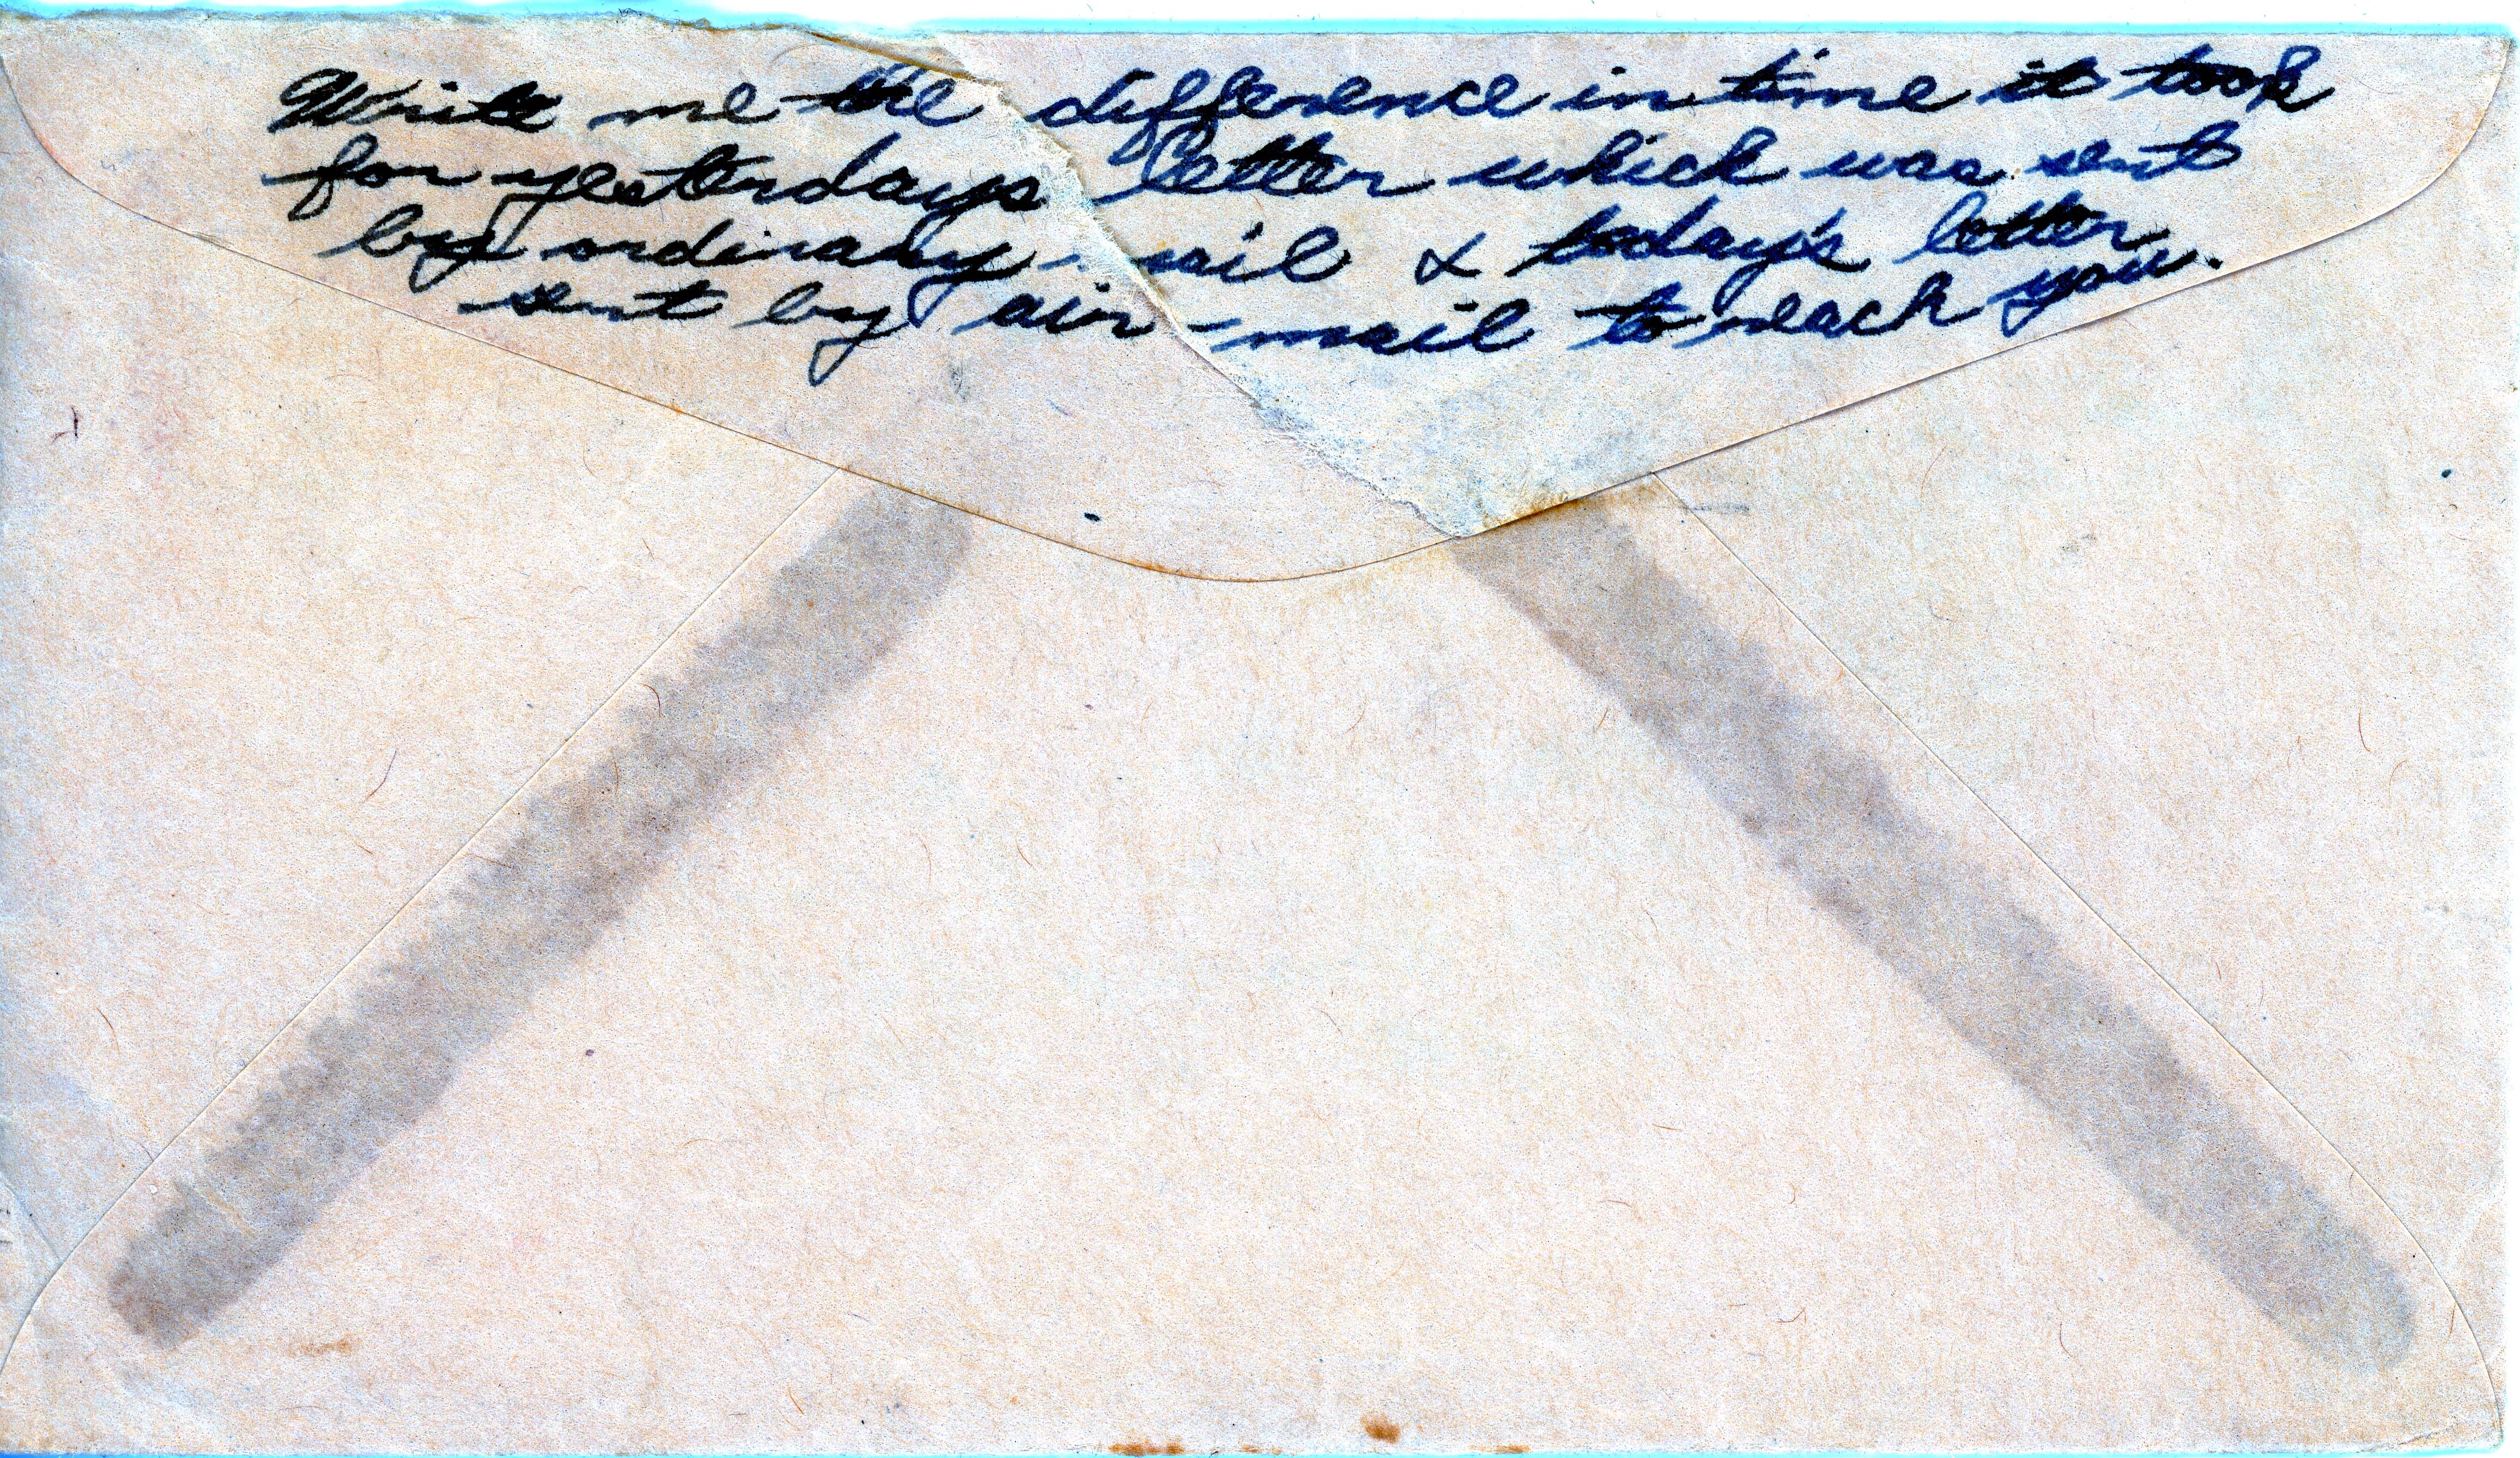 Write me the difference in time it took
for yesterdays letter which was sent
by ordinary mail & today's letter
sent by air-mail to reach you.